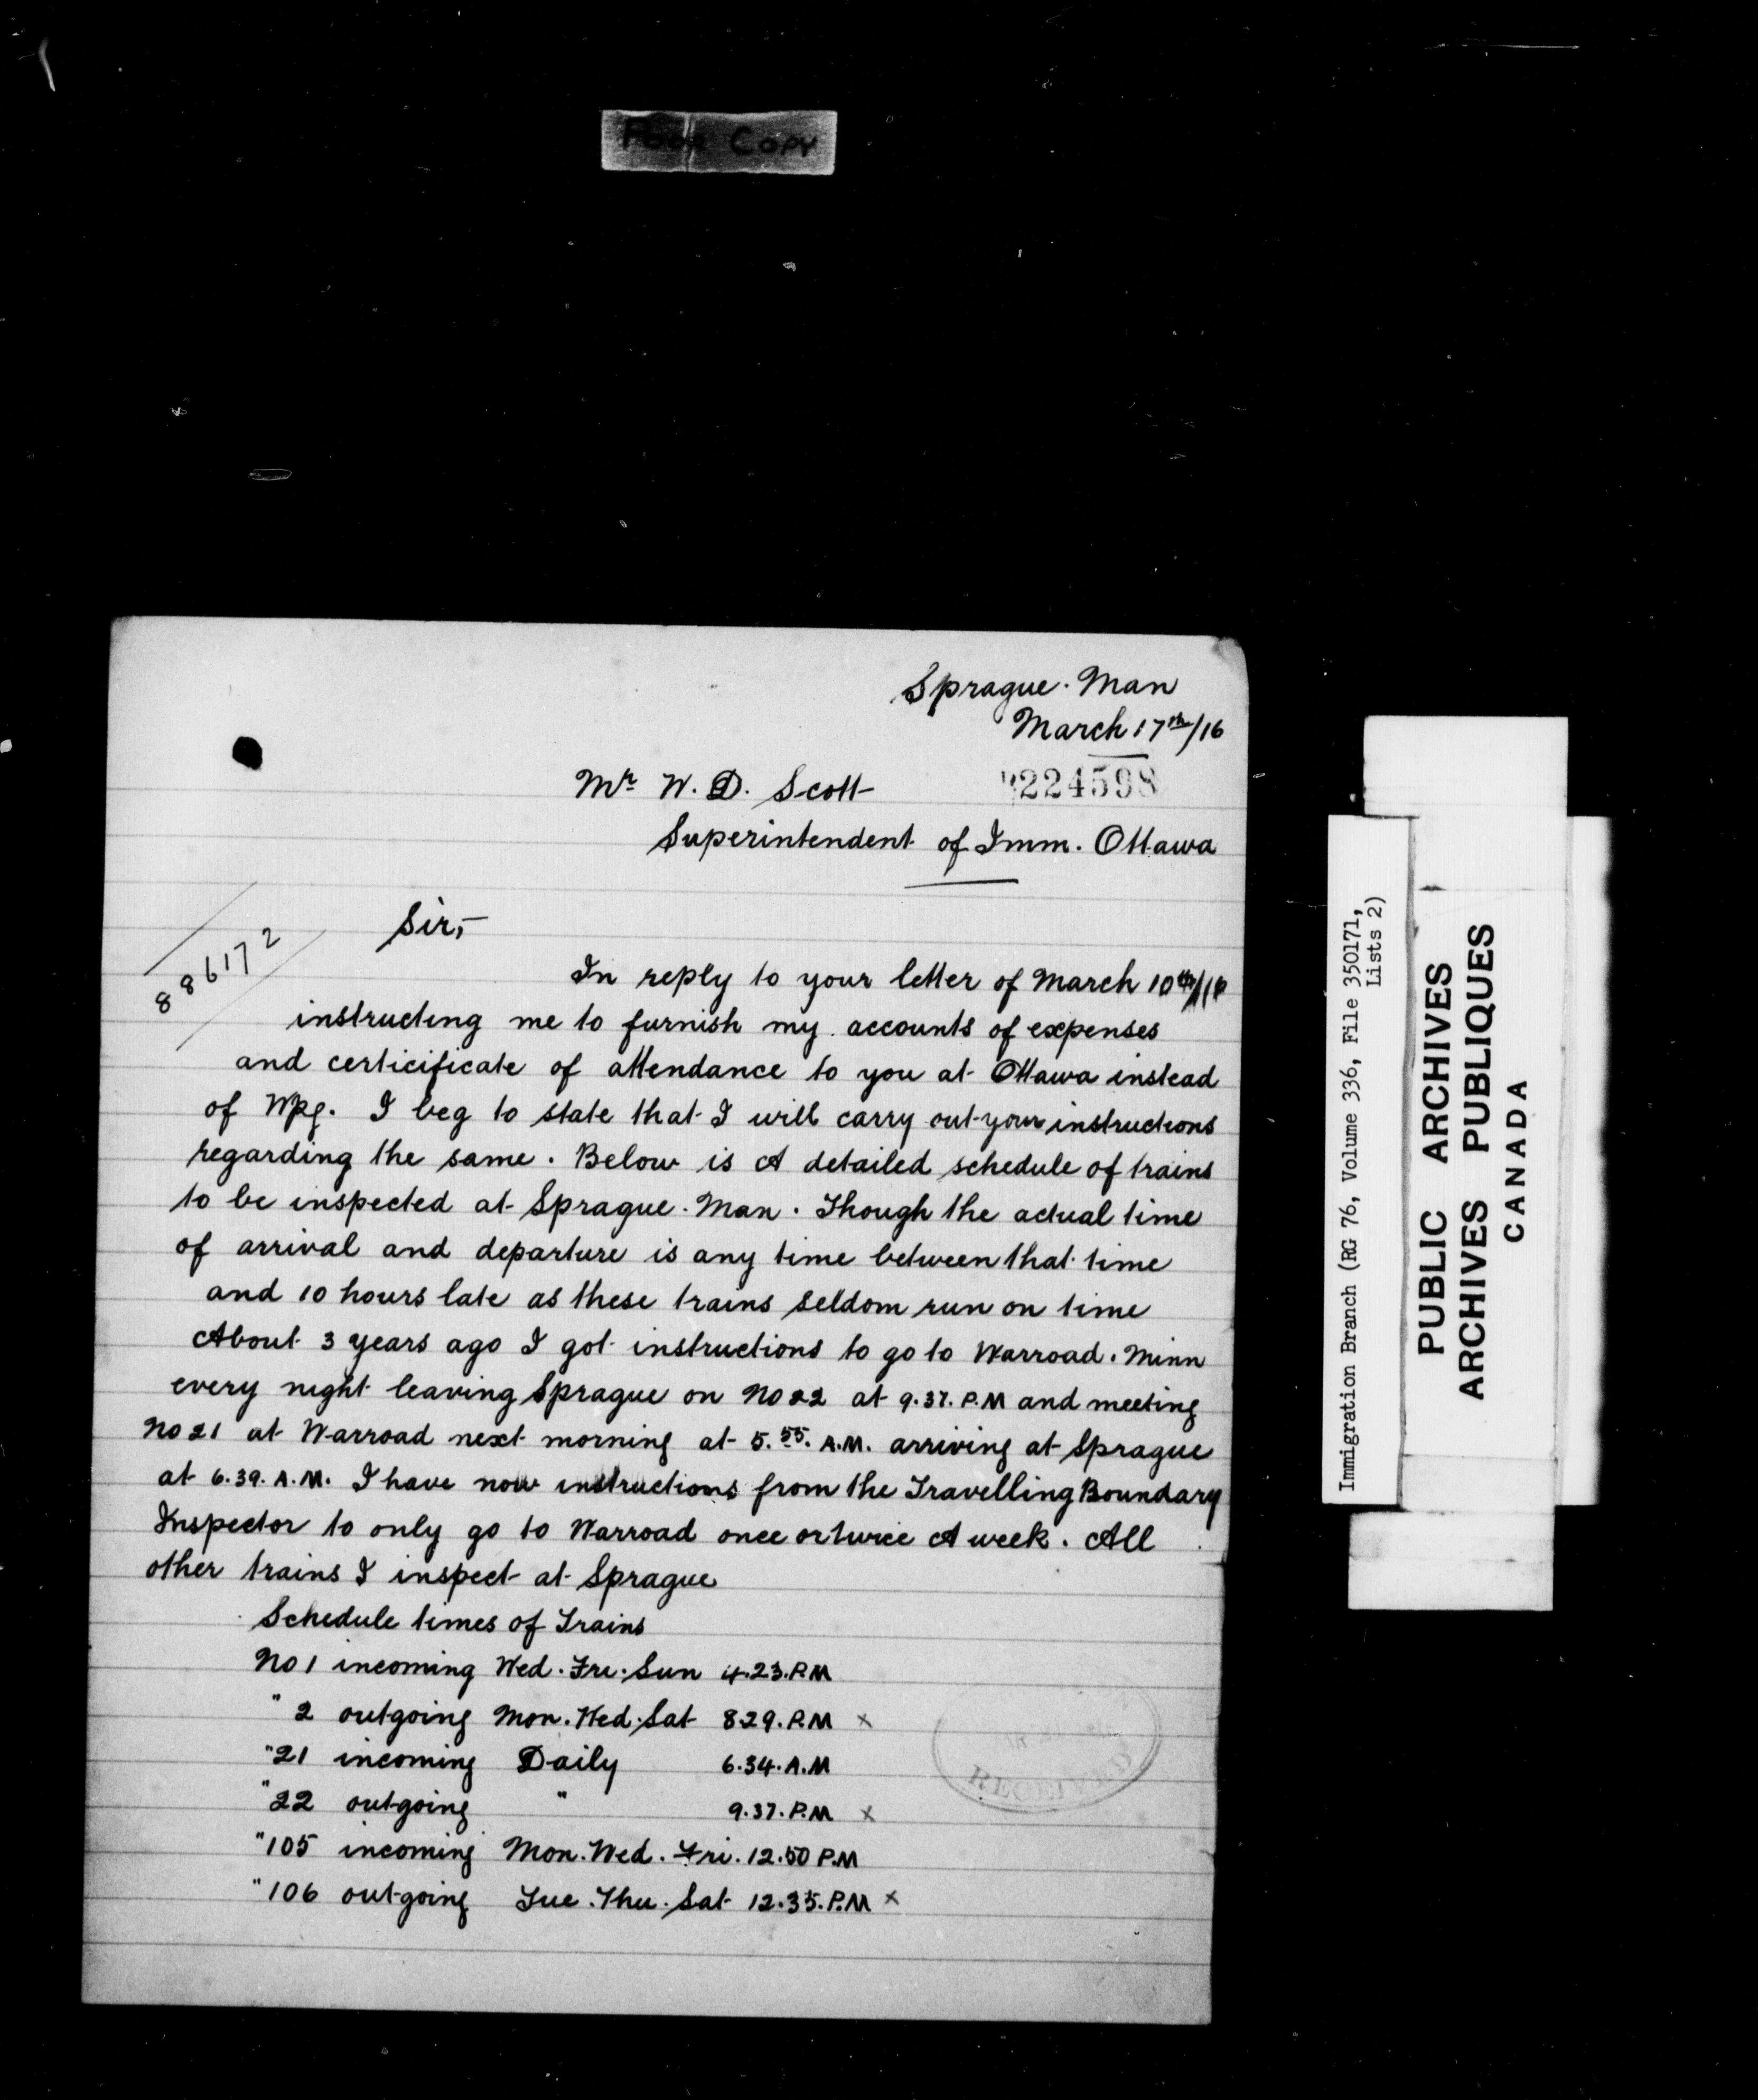 Poor Copy
Sprague. Man
March 17th/16
Mr W. D. Scott
224598
Superintendent of Imm. Ottawa
886172
Sir,-
In reply to your letter of March 10th/16
instructing me to furnish my accounts of expenses
and certicificate of attendance to you at Ottawa instead
of Wpg. I beg to state that I will carry out your instructions
regarding the same. Below is A detailed schedule of trains
to be inspected at Sprague. Man. Though the actual time
of arrival and departure is any time between that time
and 10 hours late as these trains seldom run on time
About 3 years ago I got instructions to go to Warroad. Minn
every night leaving Sprague on No 22 at 9.37. P.M and meeting
No 21 at Warroad next morning at 5.55. A.M. arriving at Sprague
at 6.39. A.M. I have now instructions from the Travelling Boundary
Inspector to only go to Warroad once or twice A week. All
other trains I inspect at Sprague
Schedule times of Trains
No 1 incoming Wed. Fri. Sun 4.23.P.M
" 2 outgoing Mon. Wed. Sat 8.29.P.M x
"21 incoming Daily 6.34.A.M
"22 outgoing " 9.37.P.M x
"105 incoming Mon. Wed. Fri. 12.50 P.M
"106 outgoing Tue. Thu. Sat 12.35.P.M x
RECEIVED
Immigration Branch (RG 76, Volume 336, File 350171,
Lists 2)
PUBLIC ARCHIVES
ARCHIVES PUBLIQUES
CANADA